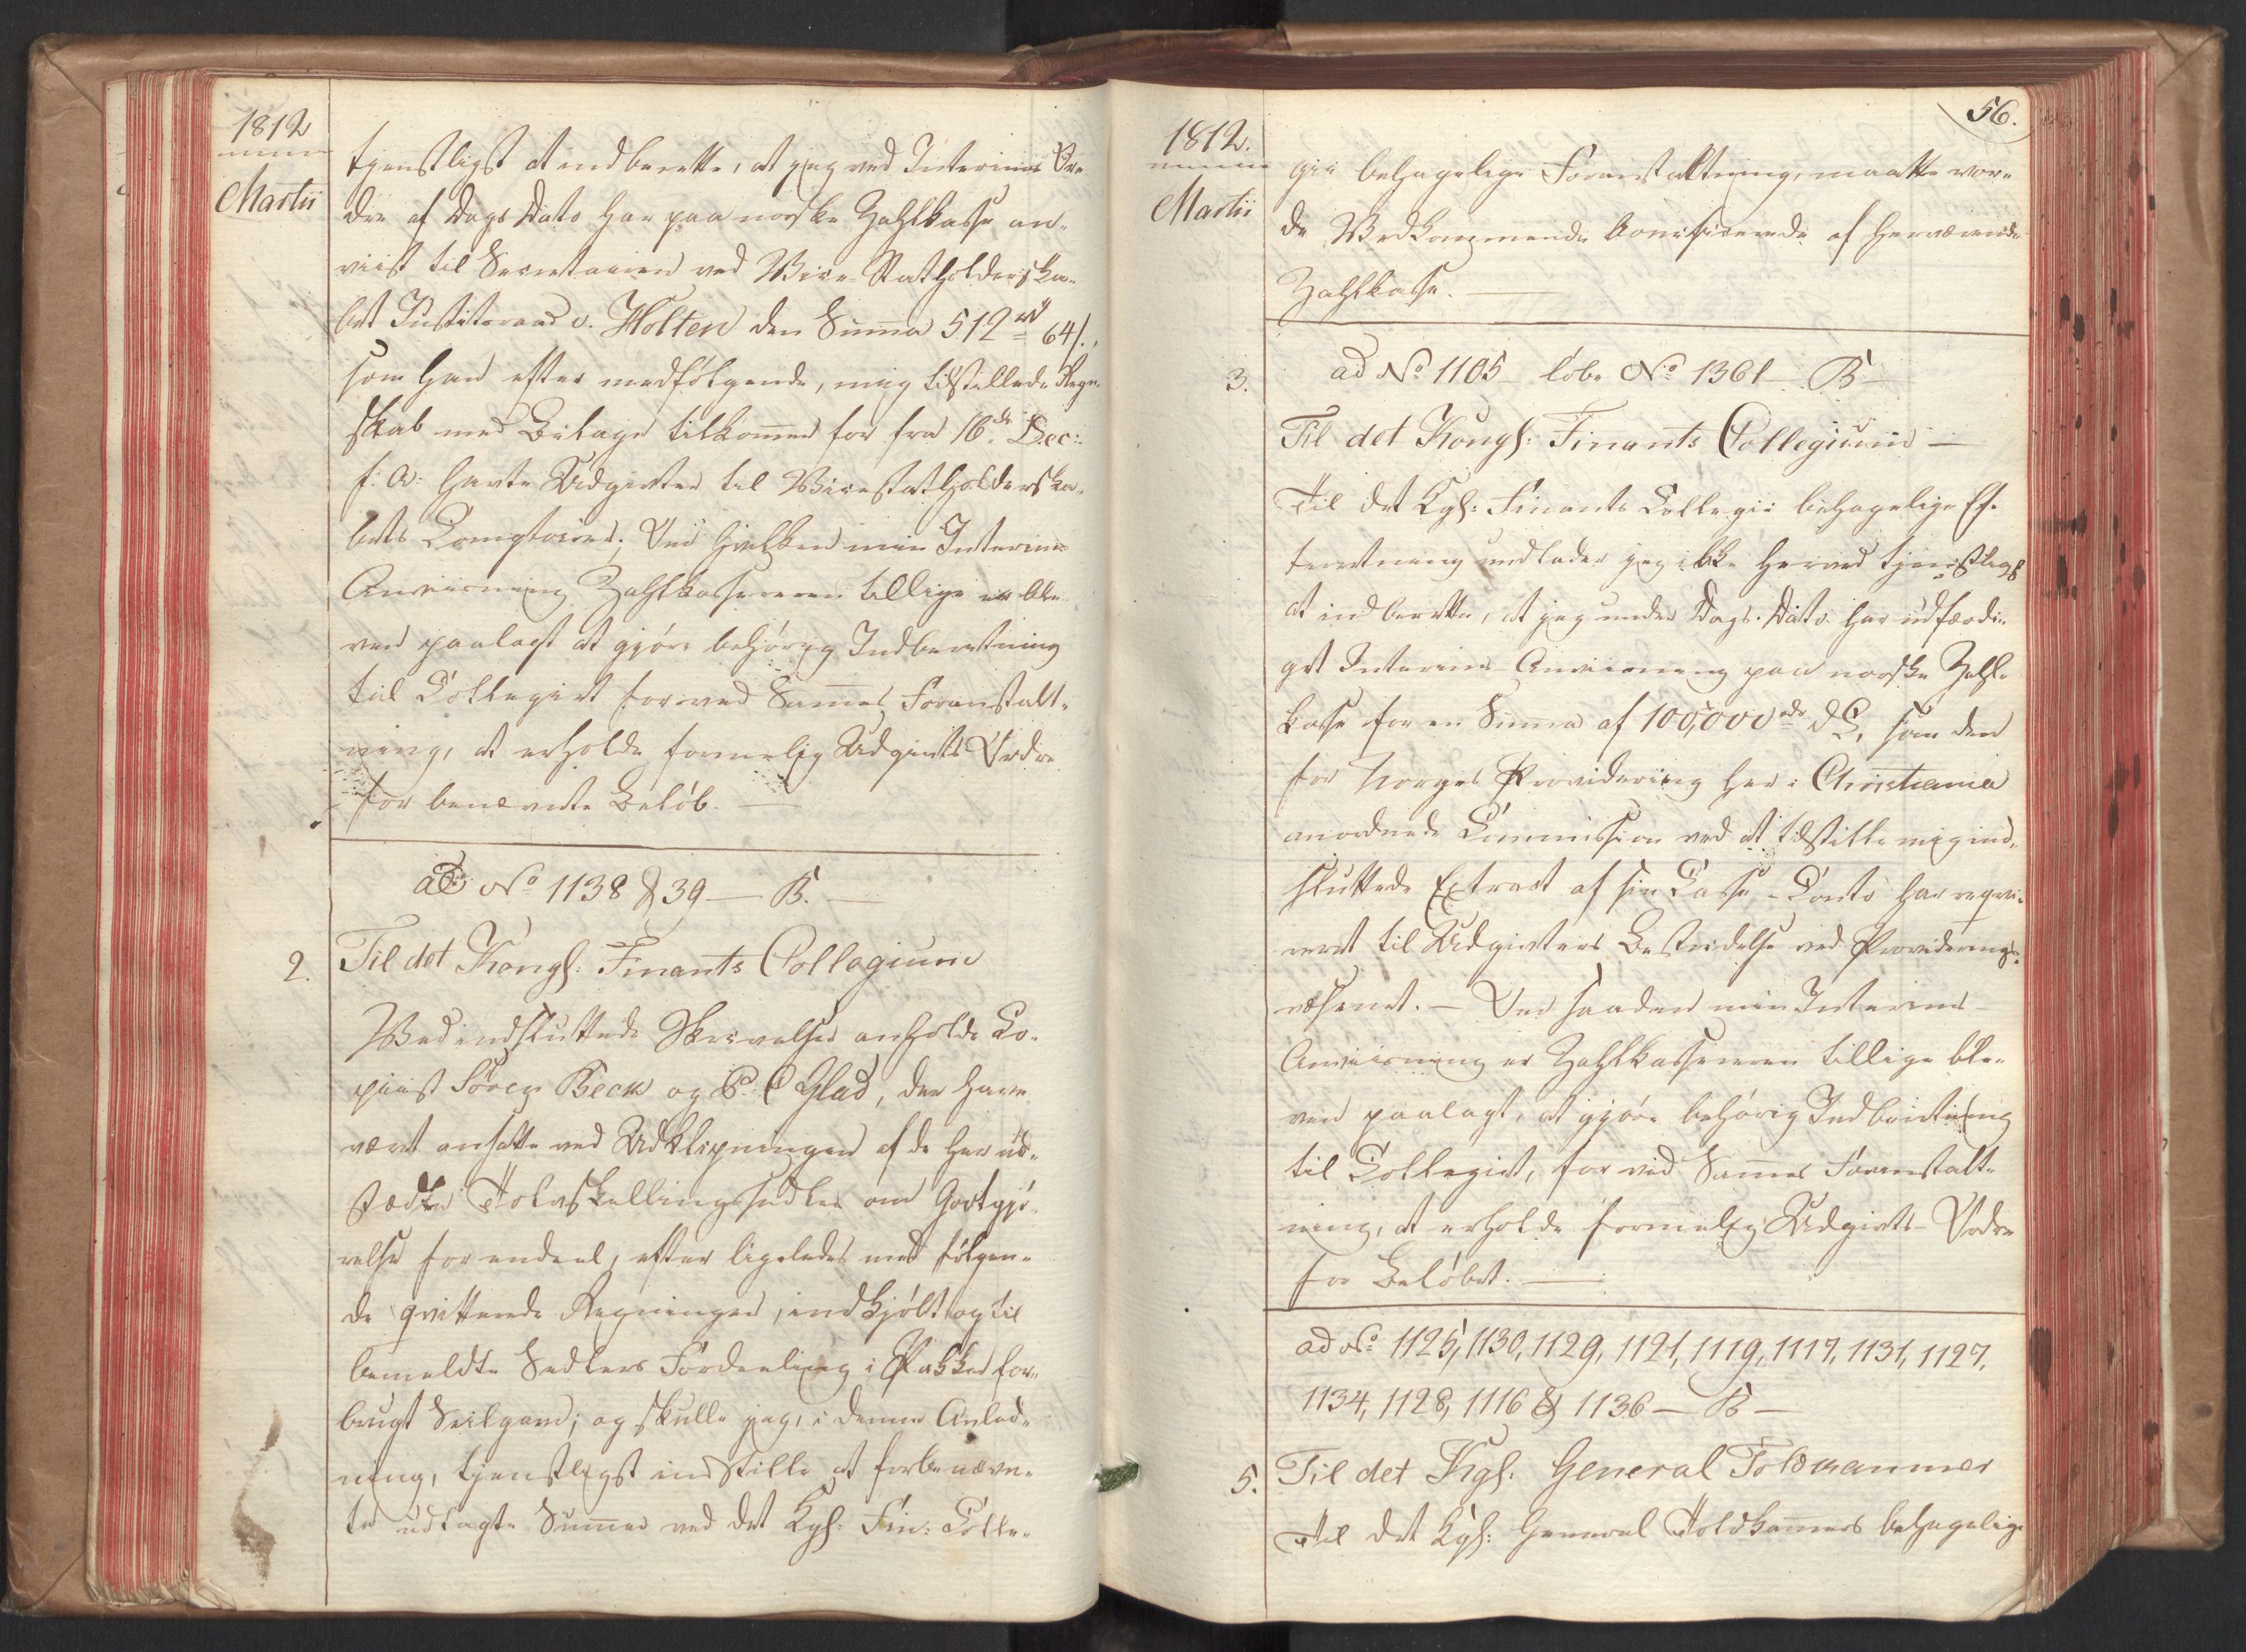 1812
Martii
tjenstligst at indberette, at jeg ved Interims Or-
dre af Dags Dato har paa norske Zahlkasse an-
viist til Secretairen ved Vice-Statholderska-
bet Justitsraad v. Holten den Summa 512 rd 64 s.,
som han efter medfølgende, mig tilstillede Regn-
skab med Bilage tilkommer for fra 16de Dec:
f: A: havte Udgivter til Vicestatholderska-
bets Comptoirer; Ved hvilken min Interims
Anviisning Zahlkassereren tillige er ble-
ven paalagt at gjøre behørig Indberetning
til Collegiet for ved Sammes Foranstalt-
ning, at erholde formelig Udgivts-Ordre
for benævnte Beløb. —
ad No 1138 & 39 — B. —
2. Til det Kongl: Finants Collegium
Ved indsluttede Skrivelser anholde Co-
piist Sørens Beck og P. C Glad, der have
været ansatte ved Udklipningen af de her ud-
stædte Tolvskillingssedler om Godtgjø-
relse for endeel, efter ligeledes med følgen-
de qvitterede Regninger, indkjøbt og til
bemeldte Sedlers Fordeeling i Pakker for-
brugt Seilgarn; og skulle jeg, i denne Anled-
ning, tjenstligst indstille at forbenævn-
te udlagte Summer ved det Kgl: Fin: Colle-
56.
1812.
Martii
gii behagelige Foranstaltning, maatte vor-
de Vedkommende bonificerede af herværende
Zahlkasse. —
3. ad No 1105 løbe No 1361 — B —
Til det Kongl: Finants Collegium —
Til det Kgl: Finants Collegii behagelige Ef-
terretning undlader jeg ikke herved tjenstligst
at indberette, at jeg under Dags Dato har udfærdi-
get Interims-Anviisning paa norske Zahl-
kasse for en Summa af 100,000 rdr DC, som den
for Norges Providering her i Christiania
anordnede Commission ved at tilstille mig ind-
sluttede Extract af sin Casse-Conto har reqvi-
reret til Udgivters Bestridelse ved Providerings-
væsenet. — Ved saadan min Interims-
Anviisning er Zahlkassereren tillige ble-
ven paalagt, at gjøre behørig Indberetning
til Collegiet, for ved Sammes Foranstalt-
ning, at erholde formelig Udgivts-Ordre
for Beløbet. —
ad No 1125, 1130, 1129, 1121, 1119, 1117, 1131, 1127,
1134, 1128, 1116 & 1136 — B —
5. Til det Kgl. General Toldkammer
Til det Kgl: General Toldkammers behagelige